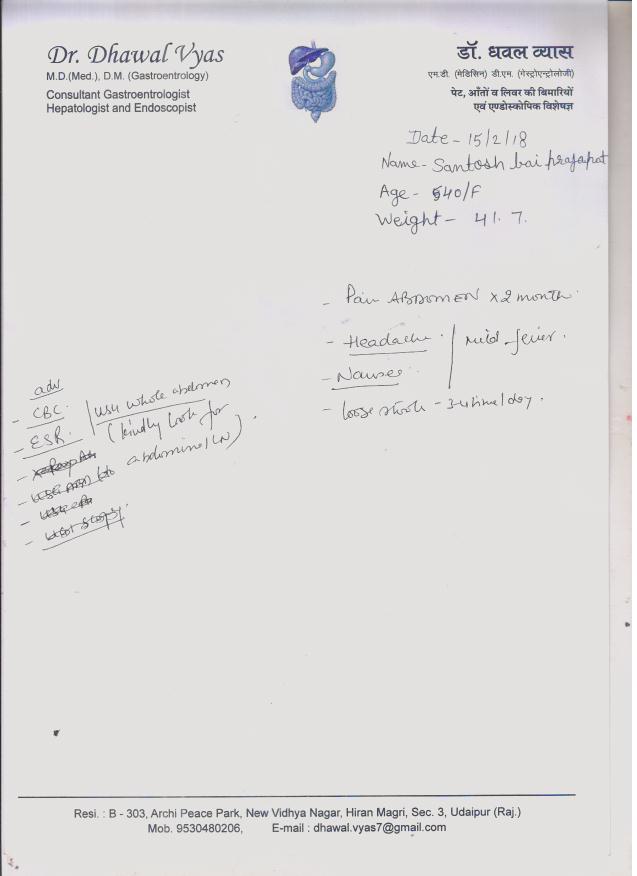 Dr. Dhawal Vyas
M.D.(Med.), D.M. (Gastroentrology)
Consultant Gastroentrologist
Hepatologist and Endoscopist
डॉ. धवल व्यास
एम.डी. (मेडिसिन) डी.एम. (गेस्ट्रोएन्ट्रोलोजी)
पेट, आँतों व लिवर की बिमारियों
एवं एण्डोस्कोपिक विशेषज्ञ
Date - 15/2/18
Name - Santosh bai prajapat
Age - 40/F
Weight - 41.7.
- Pain ABDOMEN x 2 month.
- Headache. / mild fever.
- Nausea
- loose stools - 3-4 time/day.
adv
- CBC. / USG whole abdomen
- ESR. (kindly look for
abdominal LN).
Resi. : B - 303, Archi Peace Park, New Vidhya Nagar, Hiran Magri, Sec. 3, Udaipur (Raj.)
Mob. 9530480206, E-mail : dhawal.vyas7@gmail.com